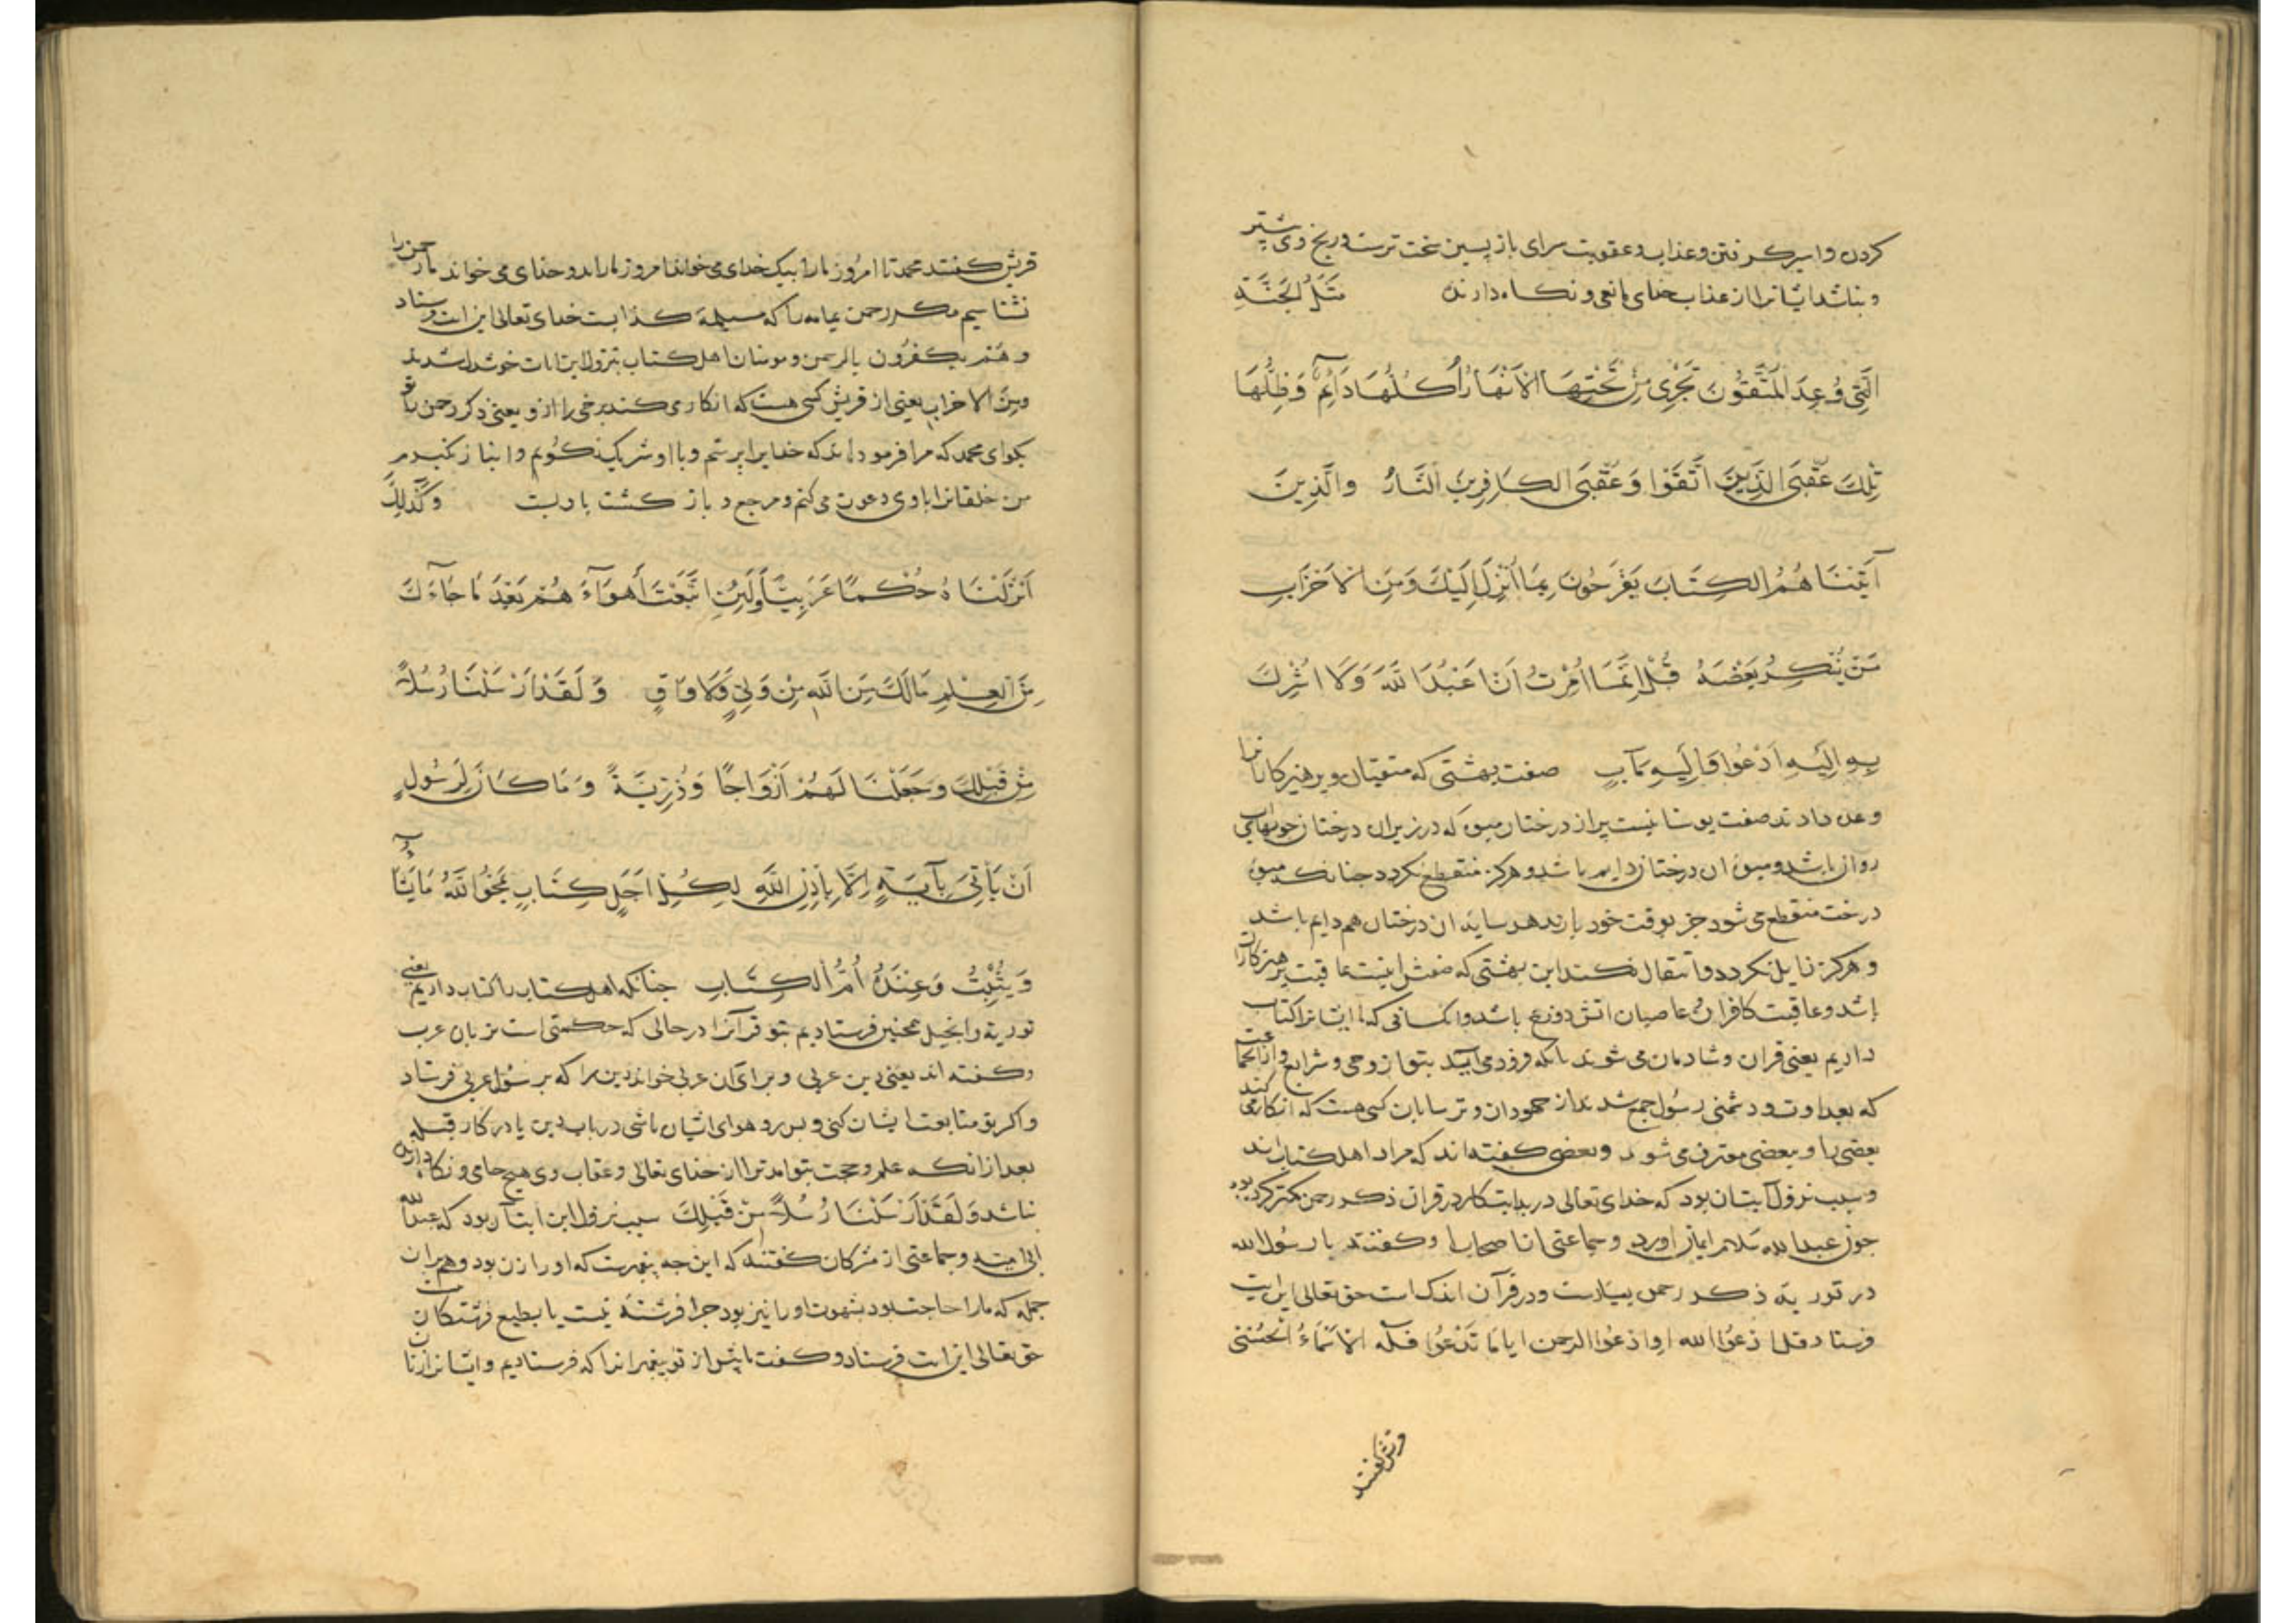 کردن و اسیر کرفتن و عذاب و عقوبت سرای باز پسین سخت ترست و رنج وی بیشتر
و نباشد ایشانرا از عذاب خدای مانعی و نکاه دارنده مَثَلُ الجَنَّةِ
الَّتِی وُعِدَ المُتَّقُونَ تَجْرِی مِنْ تَحْتِهَا الاَنْهَارُ اُکُلُهَا دَآئِمٌ وَظِلُّهَا
تِلْكَ عُقْبَی الَّذِینَ اتَّقَوْا وَعُقْبَی الکَافِرِینَ النَّارُ والَّذِینَ
آتَیْنَا هُمُ الکِتَابَ یَفْرَحُونَ بِمَا اُنْزِلَ اِلَیْكَ وَمِنَ الاَحْزَابِ
مَنْ یُنْکِرُ بَعْضَهُ قُلْ اِنَّمَا اُمِرْتُ اَنْ اَعْبُدَ اللَّهَ وَلَا اُشْرِكَ
بِهِ اِلَیْهِ اَدْعُوا وَاِلَیْهِ مَآبِ صفت بهشتی که متقیان و پرهیزکارانرا
وعده دادند صفت بوستانیست پر از درختان میوه که در زیر ان درختان جویهای
روان باشد و میوۀ ان درختان دایم باشد و هرکز منقطع نکردد جنانکه میوۀ
درخت منقطع می شود جز بوقت خود بار ندهد سایۀ ان درختان هم دایم باشد
و هرکز زایل نکردد و انتقال نکند این بهشتی که صفتش اینست عاقبت پرهیزکاران
باشد و عاقبت کافران و عاصیان اتش دوزخ باشد و انکسانی که ما ایشانرا کتاب
داریم یعنی قران و شادمان می شوند بانکه فرود می آید بتو از وحی و شرایع و از انجماعت
که بعداوت و دشمنی رسول جمع شدند از جهودان و ترسایان کسی هست که انکار می کند
بعضی را و ببعضی معترف می شوند و بعضی کفته اند که مراد اهل کتاب اند
و سبب نزول آیت ان بود که خدای تعالی در بدایت کار در قران ذکر رحمن کمتر کرده بود
جون عبدالله سلام ایمان اورد و جماعتی از اصحاب او کفتند یا رسول الله
در توریة ذکر رحمن بسیارست و در قرآن اندک است حق تعالی این ایت
فرستاد قل ادعُوا الله اوادعُوا الرحمن ایامَا تَدْعُوا فله الاسْمَاءُ الحُسْنی
قریش کفتند
قریش کفتند محمد تا امروز ما را بیک خدای می خواند امروز ما را بدو خدای می خواند ما رحمن را
نشناسیم مکر رحمن یمامه را که مسیلمۀ کذابست خدای تعالی این ایت فرستاد
و هُمْ یکفُرُون بالرحمن و مومنان اهل کتاب بنزول این ایات خوشدل شدند
ومِنَ الاحزاب یعنی از قریش کسی هست که انکار می کند برخی را از و یعنی ذکر رحمن را تو
بکوای محمد که مرا فرموده اند که خدایرا پرستم و با او شریک نکویم و انباز نکیرم
من خلقانرا باوی دعوت می کنم و مرجع و باز کشت باوست وَکَذلِكَ
اَنْزَلْنَاهُ حُکْمًا عَرَبِیًّا وَلَئِنِ اتَّبَعْتَ اَهوَآءَ هُمْ بَعْدَ مَا جَآءَكَ
مِنَ العِلْمِ مَالَكَ مِنَ اللَّهِ مِنْ وَلِیٍّ وَلَا وَاقٍ وَ لَقَدْ اَرْسَلْنَا رُسُلاً
مِنْ قَبْلِكَ وَجَعَلْنَا لَهُمْ اَزْوَاجًا وَذُرِّیَّةً وَمَا کَانَ لِرَسُولٍ
اَنْ یَأتِیَ بِآیَةٍ اِلَّا بِاِذْنِ اللَّهِ لِکُلِّ اَجَلٍ کِتَابٌ یَمْحُوا اللَّهُ مَا یَشَآءُ
وَیُثْبِتُ وَعِنْدَهُ اُمُّ الکِتَابِ جنانکه اهل کتاب را کتاب داریم یعنی
توریة و انجیل همجنین فرستادیم بتو قرآنرا در حالی که حکمتی است بزبان عرب
و کفته اند یعنی دین عربی و برای آن عربی خواند دین را که بر سُول عربی فرستاد
و اکر تو متابعت ایشان کنی و بس رو هوای ایشان باشی در باب دین یا در کار قبله
بعد از انکه علم و حجت بتو امد ترا از خدای تعالی و عقاب وی هیچ حامی و نکاه دارنده
نباشد وَلَقَدْ اَرْسَلْنَا رُسُلاً مِنْ قَبْلِكَ سبب نزول این ایت آن بود که عبدالله
ابی امیه و جماعتی از مشرکان کفتند که این جه پیغمبرست که او را زن بود و هم بران
جمله که ما را حاجت بود بشهوت او را نیز بود جرا فرشته نیست یا بطبع فرشتکان
حق تعالی این ایت فرستاد و کفت ما پیش از تو پیغمبرانرا که فرستادیم و ایشانرا زنان